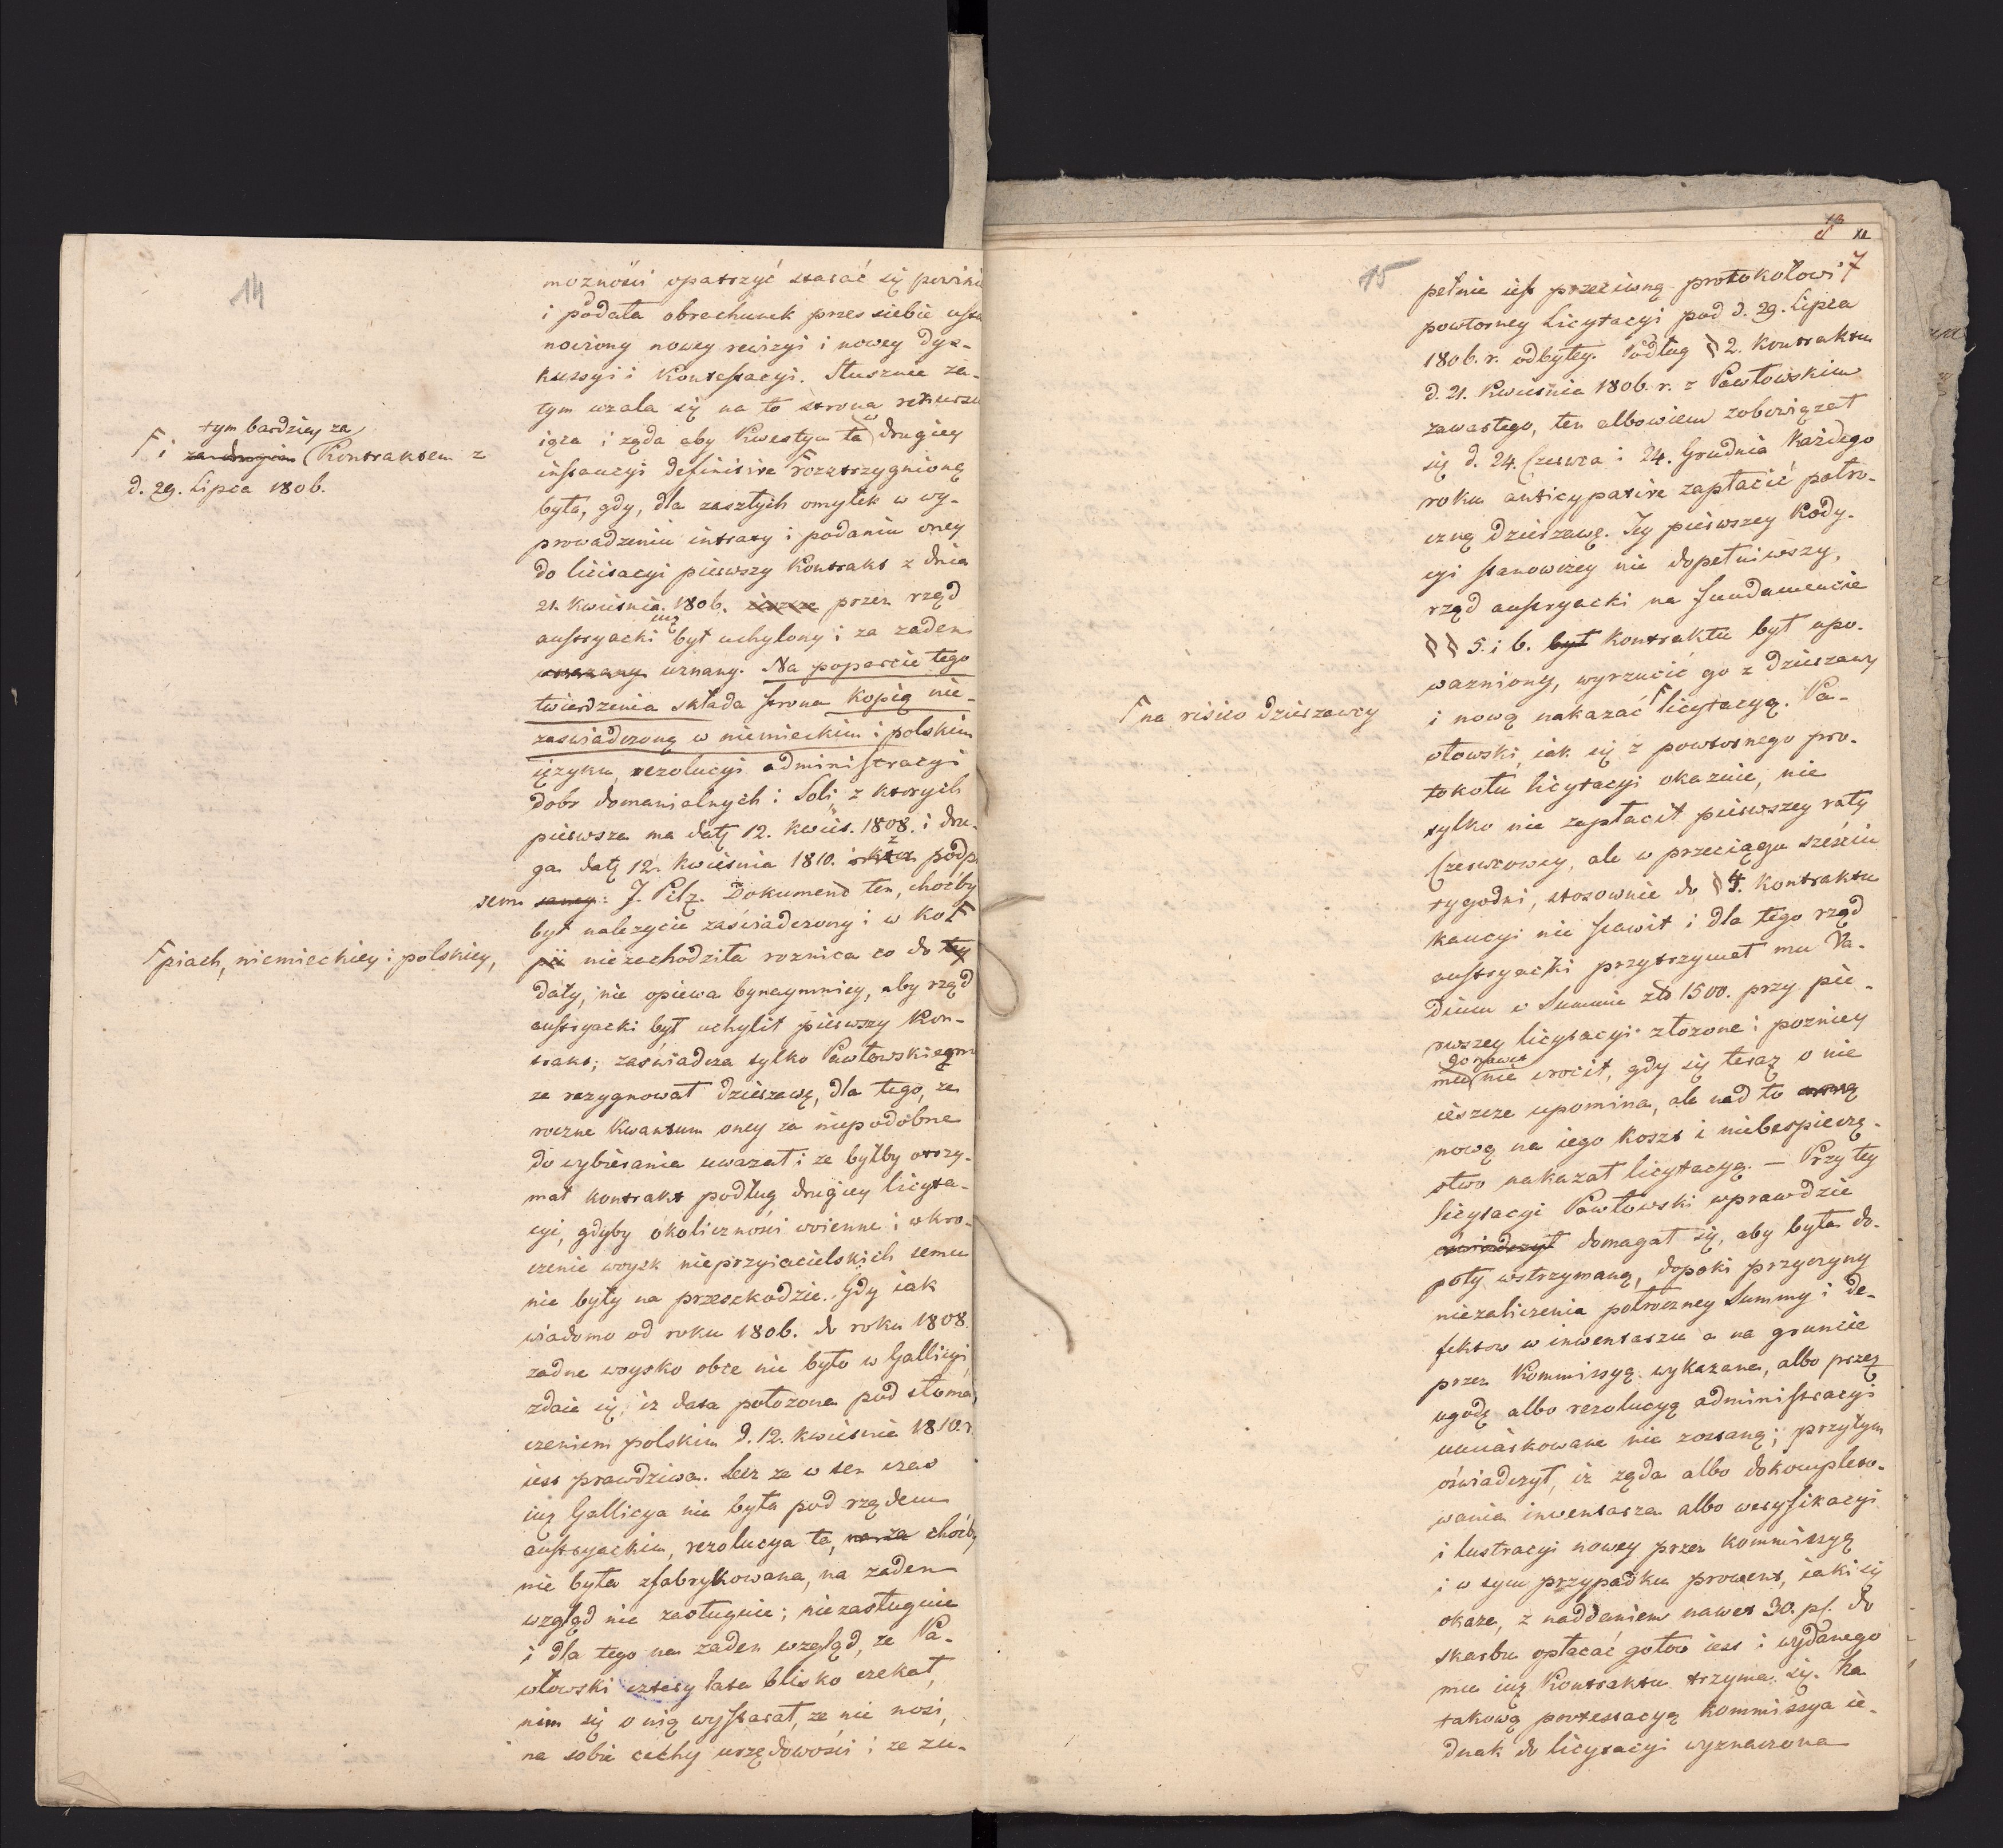 14
możności opatrzyć starać się powin
i podała obrachunek przez siebie usta
nowiony nowey rewizyi i nowey dys-
kussyi i Kontestacyi. Słusznie za-
tym uzala się na to strona rekursu
iąca i ząda aby Kwestya ta w drugiey
instancyi definitive F rozstrzygnioną
była, gdy, dla zaszłych omyłek w wy-
prowadzeniu intraty i podaniu oney
do licitacyi pierwszy Kontrakt z dnia
21. Kwietnia 1806. ieszcze przez rząd
austryacki iuż był uchylony i za zaden
uznany. Na poparcie tego
twierdzenia składa strona kopią nie-
zaświadczoną w niemieckim i polskim
ięzyku, rezolucyi administracyi
dobr domanialnych i Soli, z ktorych
pierwsza ma datę 12. Kwiet. 1808. i dru-
ga datę 12. Kwietnia 1810. z podpi
sem J. Pilz. Dokument ten, choćby
był nalezycie zaświadczony i w Ko F
pii niezachodziła roznica co do tey
daty, nie opiewa bynaymniey, aby rząd
austryacki był uchylił pierwszy Kon-
trakt; zaświadcza tylko Pawłowskiemu
ze rezygnował dzierzawę, dla tego, ze
roczne Kwantum oney za niepodobne
do wybierania uwazał i ze byłby otrzy-
mał kontrakt podług drugiey licyta-
cyi, gdyby okoliczności woienne i wkro-
czenie woysk nieprzyiacielskich temu
nie były na przeszkodzie. Gdy iak
wiadomo od roku 1806. do roku 1808.
zadne woysko obce nie było w Gallicyi,
zdaie się, iz data położona pod tłoma,
czeniem polskim d. 12. Kwietnia 1810. r.
iest prawdziwa. Lecz ze w ten czas
iuż Gallicya nie była pod rządem
austryackim, rezolucya ta, choćby
nie była zfabrykowana, na zaden
wzgląd nie zasługuie; niezasługuie
i dla tego na zaden wzgląd, ze Pa-
włowski cztery lata blisko czekał,
nim się o nią wystarał, ze nie nosi,
na sobie cechy urzędowości i ze zu-
F i zadrugim tym bardziey za Kontraktem z
d. 29. Lipca 1806.
F piach, niemieckiey i polskiey,
15
7
pełnie iest przeciwną protokołowi
powtorney Licytacyi pod d. 29. Lipca
1806. r. odbytey. Podług § 2. Kontraktu
d. 21. Kwietnia 1806. r. z Pawłowskim
zawartego, ten albowiem zobowiązał
się d. 24. Czerwca i 24. Grudnia Każdego
roku anticypative zapłacić połro-
czną dzierzawę. Tey pierwszey Kody-
cyi stanowczey nie dopełniwszy,
rząd austryacki na fundamencie
§§ 5. i 6. był Kontraktu był upo-
wazniony, wyrzucić go z dzierzawy
i nową nakazać F licytacyą. Pa-
włowski, iak się z powtornego pro-
tokołu licytacyi okazuie, nie
tylko nie zapłacił pierwszey raty
Czerwcowey, ale w przeciągu sześciu
tygodni, stosownie do § 4. Kontraktu
kaucyi nie stawił i dla tego rząd
austryacki przytrzymał mu Va-
dium w Summie złr 1500. przy pie-
rwszey licytacyi złozone i pozniey
mu go nawet nie wrocił, gdy się teraz o nie
ieszcze upomina, ale nad to
nową na iego koszt i niebespieczę-
stwo nakazał licytacyą. — Przy tey
licytacyi Pawłowski wprawdzie
oświadczył domagał się, aby była do-
poty wstrzymaną, dopoki przyczyny
niezaliczenia połroczney Summy i de-
fektow w inwentarzu a na gruncie
przez Kommissyą wykazane, albo przez
ugodę albo rezolucyą administracyi
umiarkowane nie zostaną; przytym
oświadczył, iz ząda albo dokompleto-
wania inwentarza albo weryfikacyi
i lustracyi nowey przez kommissyą
i w tym przypadku prowent, iaki się
okaze, z naddaniem nawet 30. pf. do
skarbu opłacać gotow iest i wydanego
mu iuż Kontraktu trzyma się. Na
takową protestacyą Kommissya ie-
dnak do licytacyi wyznaczona
F na risico dzierzawcy